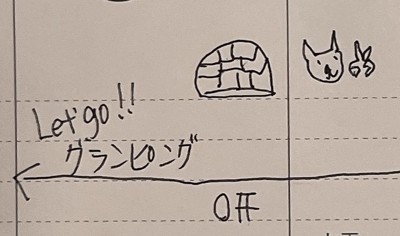 Let's go!!
グランピング
OFF